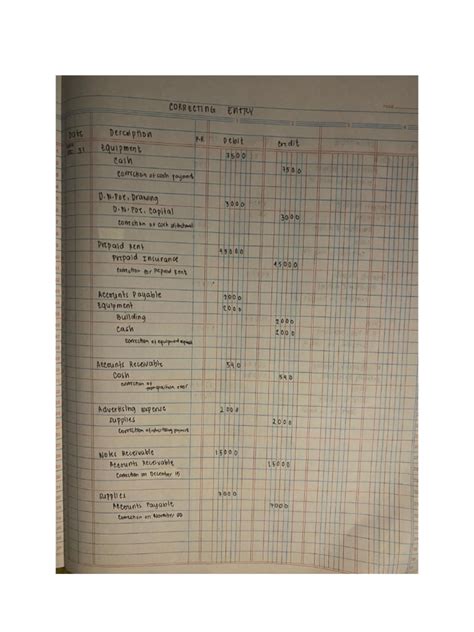 CORRECTING ENTRY
Date Description P.R Debit Credit
31 Equipment 7500
Cash 7500
Correction of cash payment
D.N. Poe, Drawing 3000
D.N. Poe, Capital 3000
Correction of cash withdrawal
Prepaid Rent 45000
Prepaid Insurance 45000
Correction for prepaid rent
Accounts Payable
Equipment 2000
Building
Cash 2000
Correction of equipment
Accounts Receivable 540
Cash 540
Correction of
Advertising Expense 2000
Supplies 2000
Correction of advertising payment
Notes Receivable 15000
Accounts Receivable 15000
Correction on December 15
Supplies 7000
Accounts Payable 7000
Correction on November